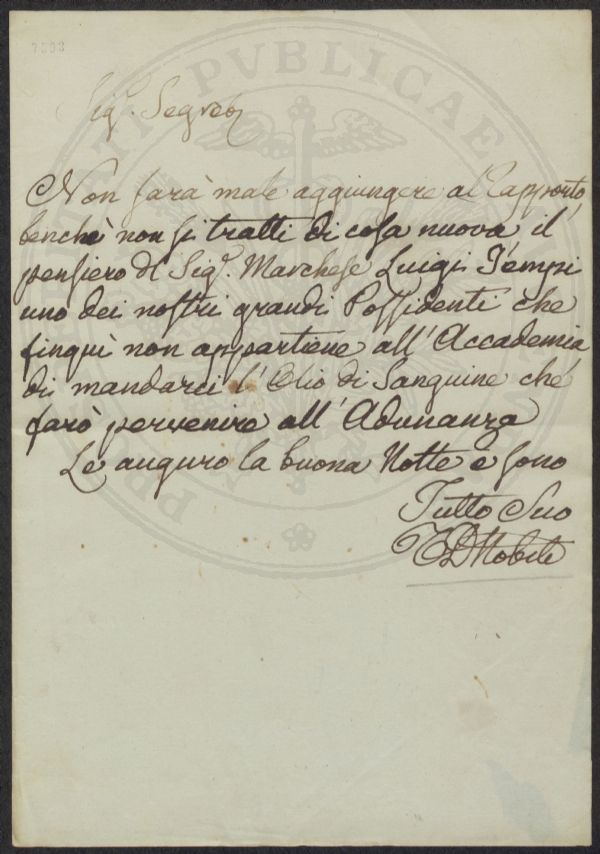 7393
Sig.r Segret.o
Non farà male aggiungere al Rapporto,
benchè non si tratti di cosa nuova il
pensiero del Sig.r Marchese Luigi Tempi
uno dei nostri grandi Possidenti che
finquì non appartiene all'Accademia
di mandarci l'Olio di Sanguine che
farò pervenire all'Adunanza
Le auguro la buona Notte e sono
Tutto Suo
Nobili
PVBLICAE